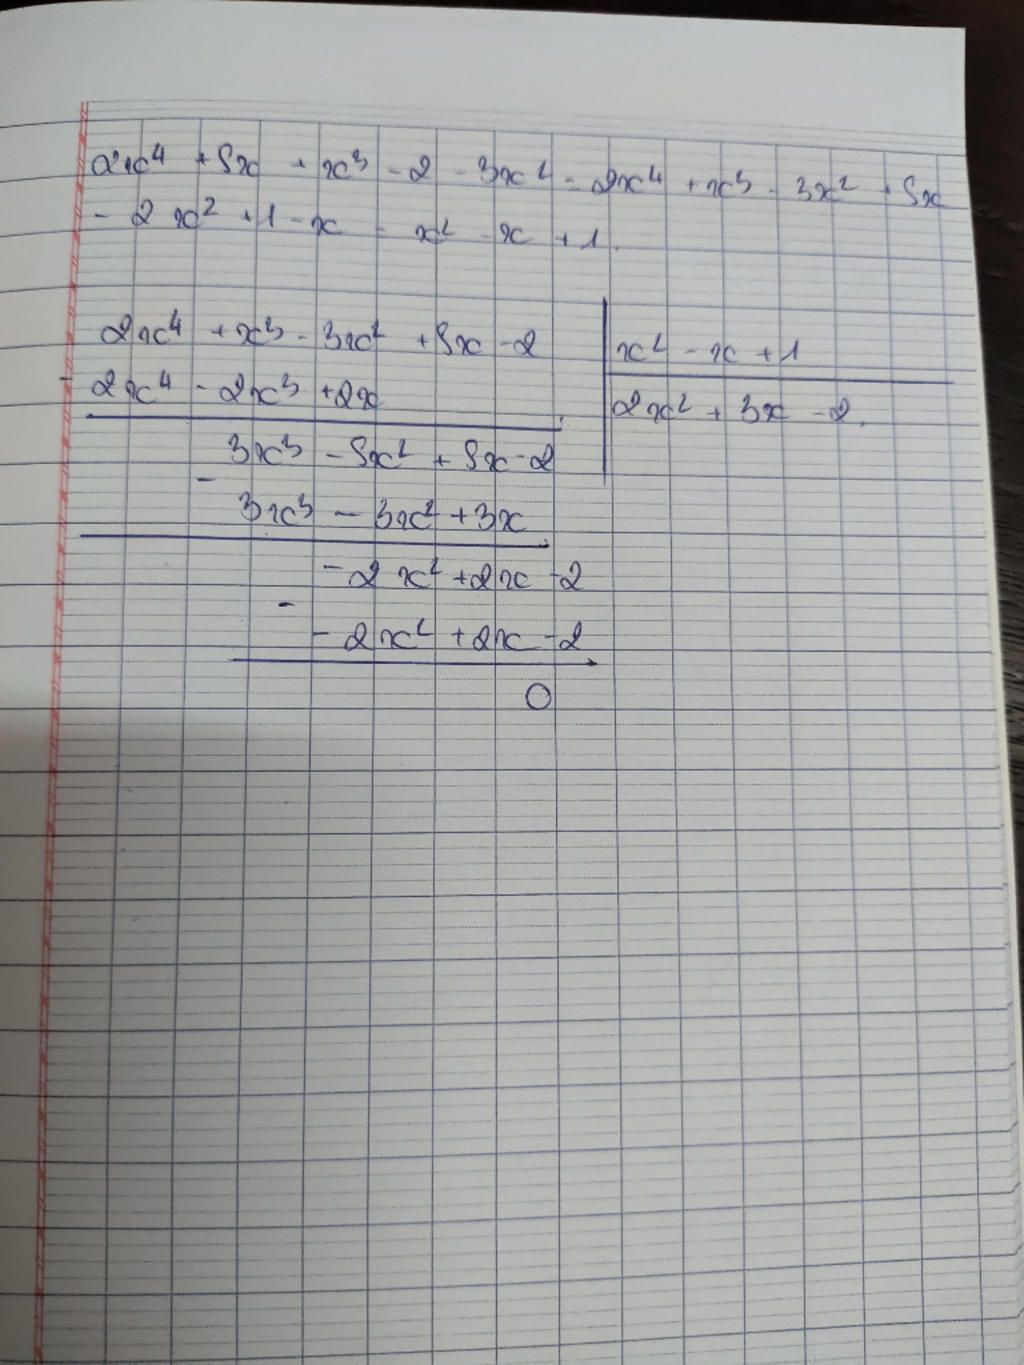 2x⁴ + 5x + x³ - 2 - 3x² = 2x⁴ + x³ - 3x² + 5x
- 2 x² + 1 - x = x² - x + 1.
2x⁴ + x³ - 3x² + 5x - 2 | x² - x + 1
- 2x⁴ - 2x³ + 2x | 2x² + 3x - 2.
3x³ - 5x² + 5x - 2
- 3x³ - 3x² + 3x
- 2x² + 2x - 2
- - 2x² + 2x - 2
0